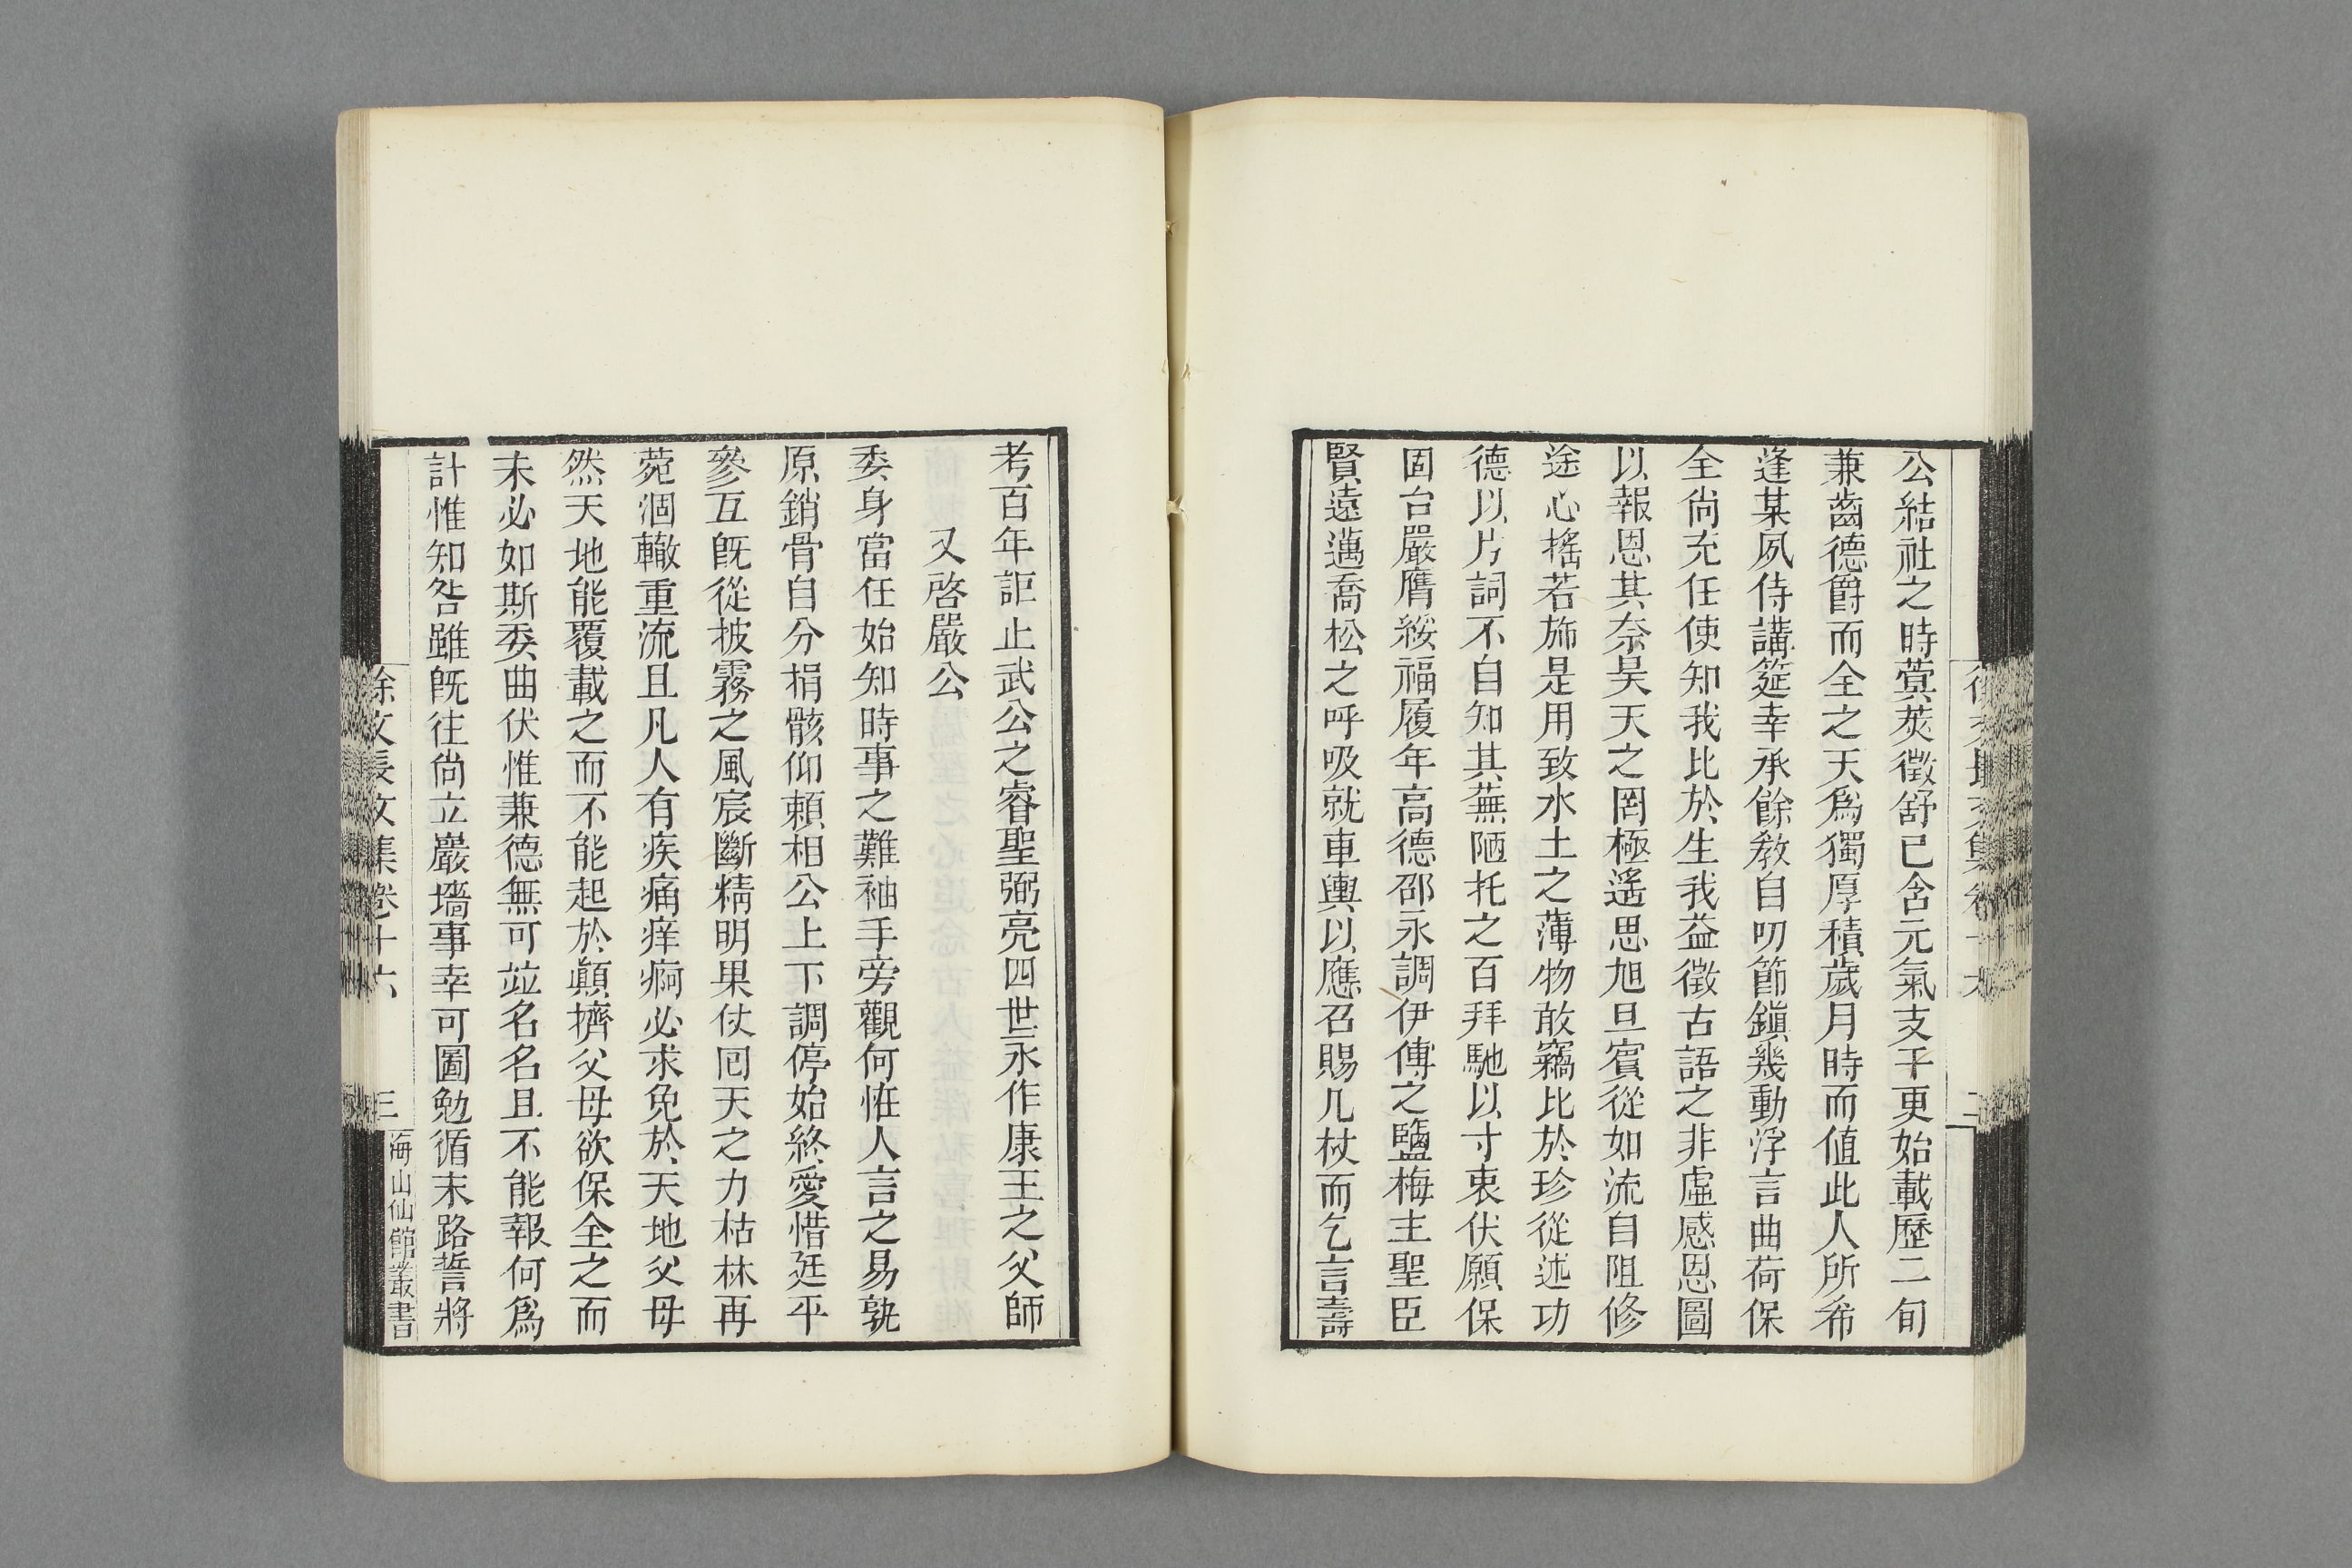 公結社之時蓂莢徵舒已含元氣支干更始載歷二旬
兼齒德爵而全之天爲獨厚積歲月時而値此人所希
逢某夙侍講筵幸承餘教自叨節鎭幾動浮言曲荷保
全尙充任使知我比於生我益徵古語之非虛感恩圖
以報恩其奈昊天之罔極遙思旭旦賓從如流自阻修
途心搖若旆是用致水土之薄物敢竊比於珍從述功
德以片詞不自知其蕪陋托之百拜馳以寸衷伏願保
固台嚴膺綏福履年高德邵永調伊傳之鹽梅主聖臣
賢遠邁喬松之呼吸就車輿以應召賜几杖而乞言壽
考百年詎止武公之睿聖弼亮四世永作康王之父師
又啓嚴公
委身當任始知時事之難袖手旁觀何恠人言之易孰
原銷骨自分捐骸仰賴相公上下調停始終愛惜廷平
參互旣從披霧之風宸斷精明果仗囘天之力枯林再
菀涸轍重流且凡人有疾痛痒痾必求免於天地父母
然天地能覆載之而不能起於顚擠父母欲保全之而
未必如斯委曲伏惟兼德無可竝名名且不能報何爲
計惟知咎雖旣往尙立巖墻事幸可圖勉循末路誓將
徐文長文集卷十六
三
海山仙館叢書